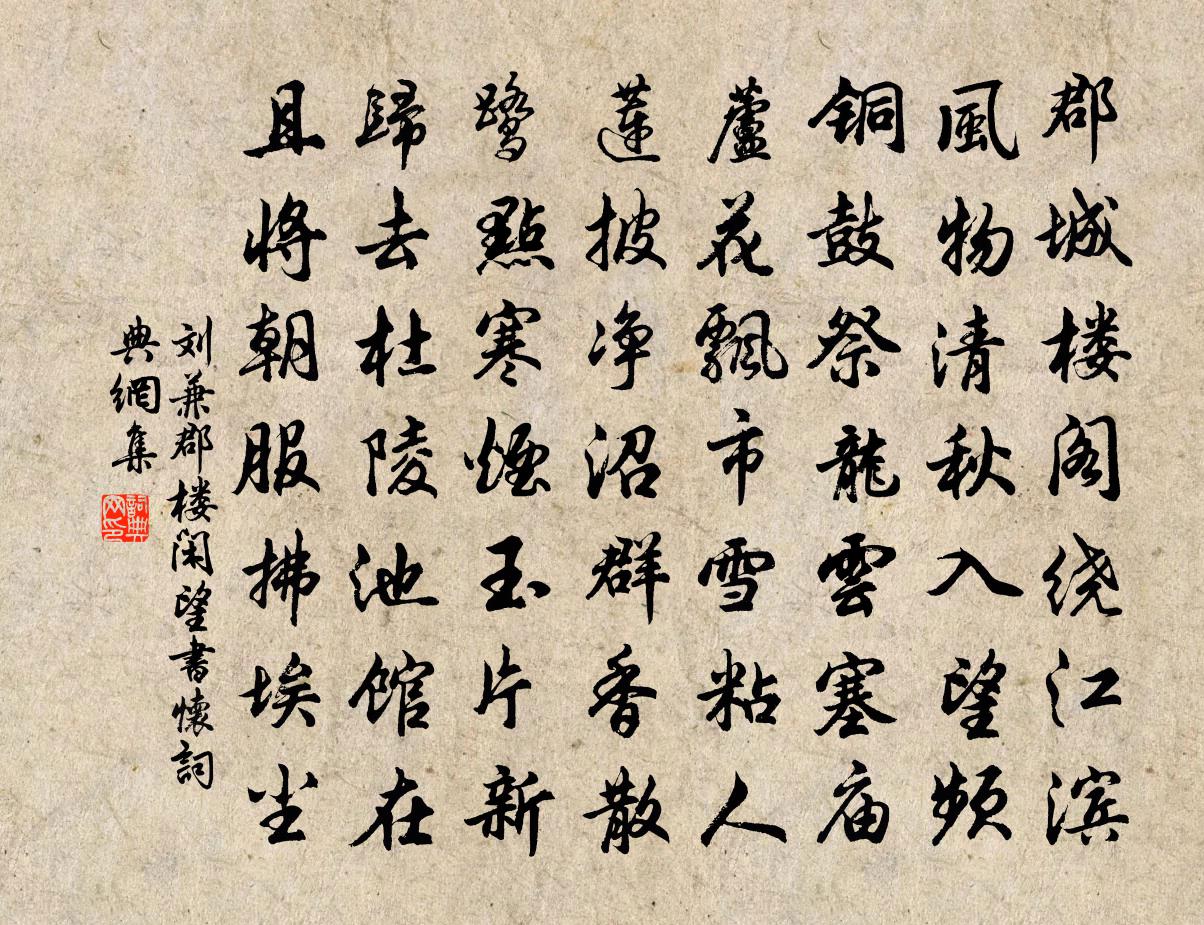 郡城楼阁绕江滨
風物清秋入望频
铜鼓祭龍雲塞庙
蘆花飄市雪粘人
蓮披净沼群香散
鷺點寒煙玉片新
歸去杜陵池馆在
且将朝服拂埃尘
刘兼郡楼闲望書懷詞
典網集
詞典網印